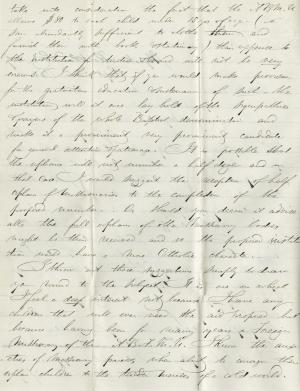 take into consideration the fact that the A B M U
allows $80 to each child under 16 yrs of age (a
sum abundantly sufficient to clothe them and
furnish them with books Stationery) the expence to
the institution for tuition and will not be very
enormous. I think that if you would make provision
for the gratuitous education of such the
institution will at once lay hold of the sympathies
of the whole Baptist denomination and
make it a prominent, very prominent candidate
for special attention & patronage. It is possible that
the orphans will not number a half dozen and in
that case I would suggest the adoption of half
orphans of Missionaries to the completion of the
proposed number. Or should you deem it advisable
after the full orphans of other Missionary bodies
might be then received and so the proposed institution
would have a more Catholic character.
I throw out these suggestions simply to draw
your mind to the subject. It is one in which
I feel a deep interest not because I have any
children that will ever need the aid proposed but
because having been for many years a Foreign
Missionary of the A. B. M. U. I know the anxieties
of Missionary parents, who about to resign their
orphan children to the tender mercies of a cold world.